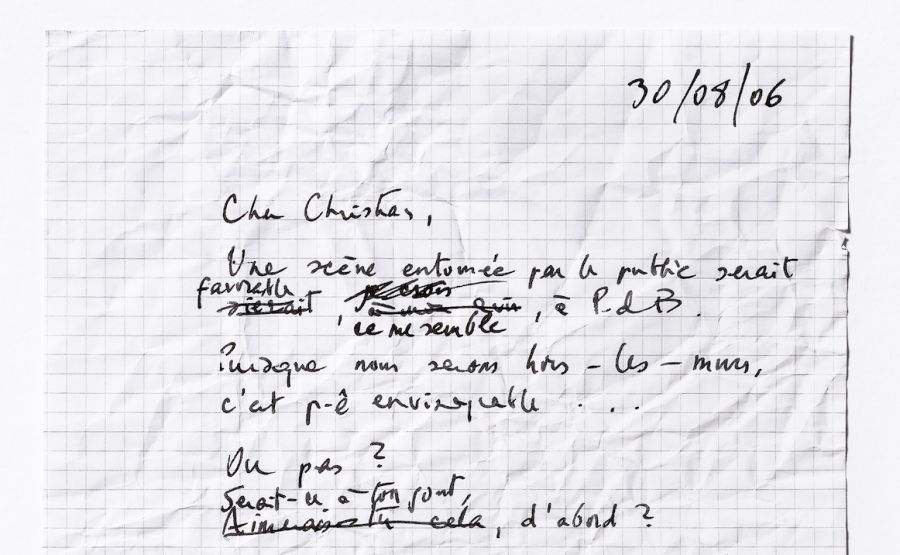 30/08/06
Cher Christian,
Une scène entourée par le public serait
favorable
sierait, je crois
à mon avis, à P.d.B.
ce me semble
Puisque nous serons hors-les-murs,
c'est p-ê envisageable...
Ou pas ?
Serait-ce à ton goût,
Aimerais-tu cela, d'abord ?